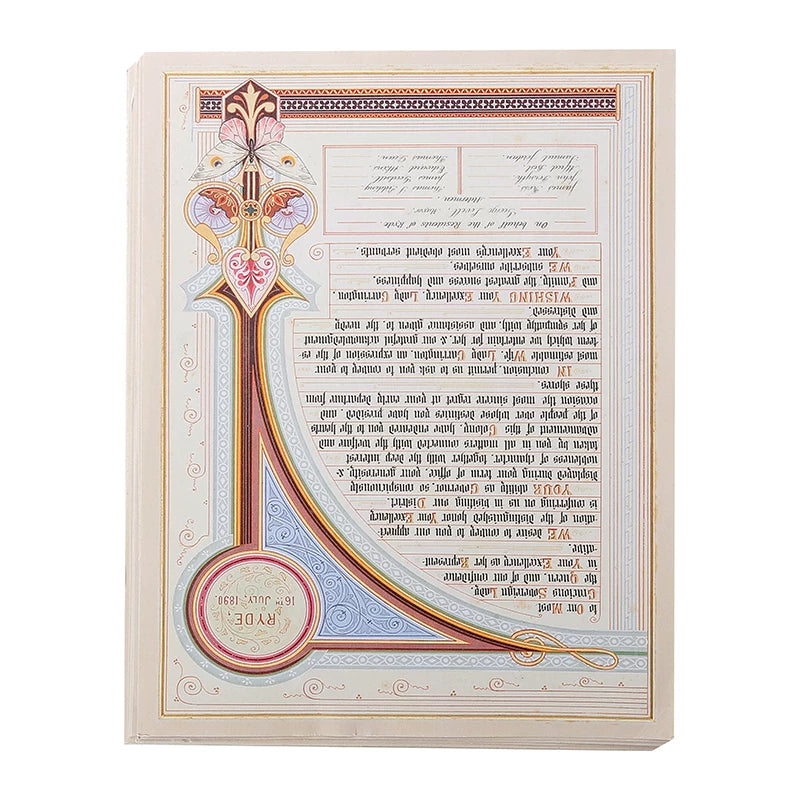 RYDE,
16TH JULY, 1890.
to Our Most
Gracious Sovereign Lady,
the Queen, and of our confidence
in Your Excellency as her Represent-
ative.
WE desire to convey to you our appreci-
ation of the distinguished honor Your Excellency
is conferring on us in visiting our District.
YOUR ability as Governor, so conspicuously
displayed during your term of office, your generosity, &
nobleness of character, together with the deep interest
taken by you in all matters connected with the welfare and
advancement of this Colony, have endeared you to the hearts
of the people over whose destinies you have presided, and
occasion the most sincere regret at your early departure from
these shores.
IN conclusion, permit us to ask you to convey to your
most estimable Wife, Lady Carrington, an expression of the es-
teem which we entertain for her, & our grateful acknowledgment
of her sympathy with, and assistance given to, the needy
and distressed.
WISHING Your Excellency, Lady Carrington,
and Family, the greatest success and happiness,
WE subscribe ourselves,
Your Excellency's most obedient servants,
On behalf of the Residents of Ryde.
Mayor.
Aldermen.
James
John Forsyth
Alfred
Thomas
James
Edward
Thomas
Samuel Jordan.